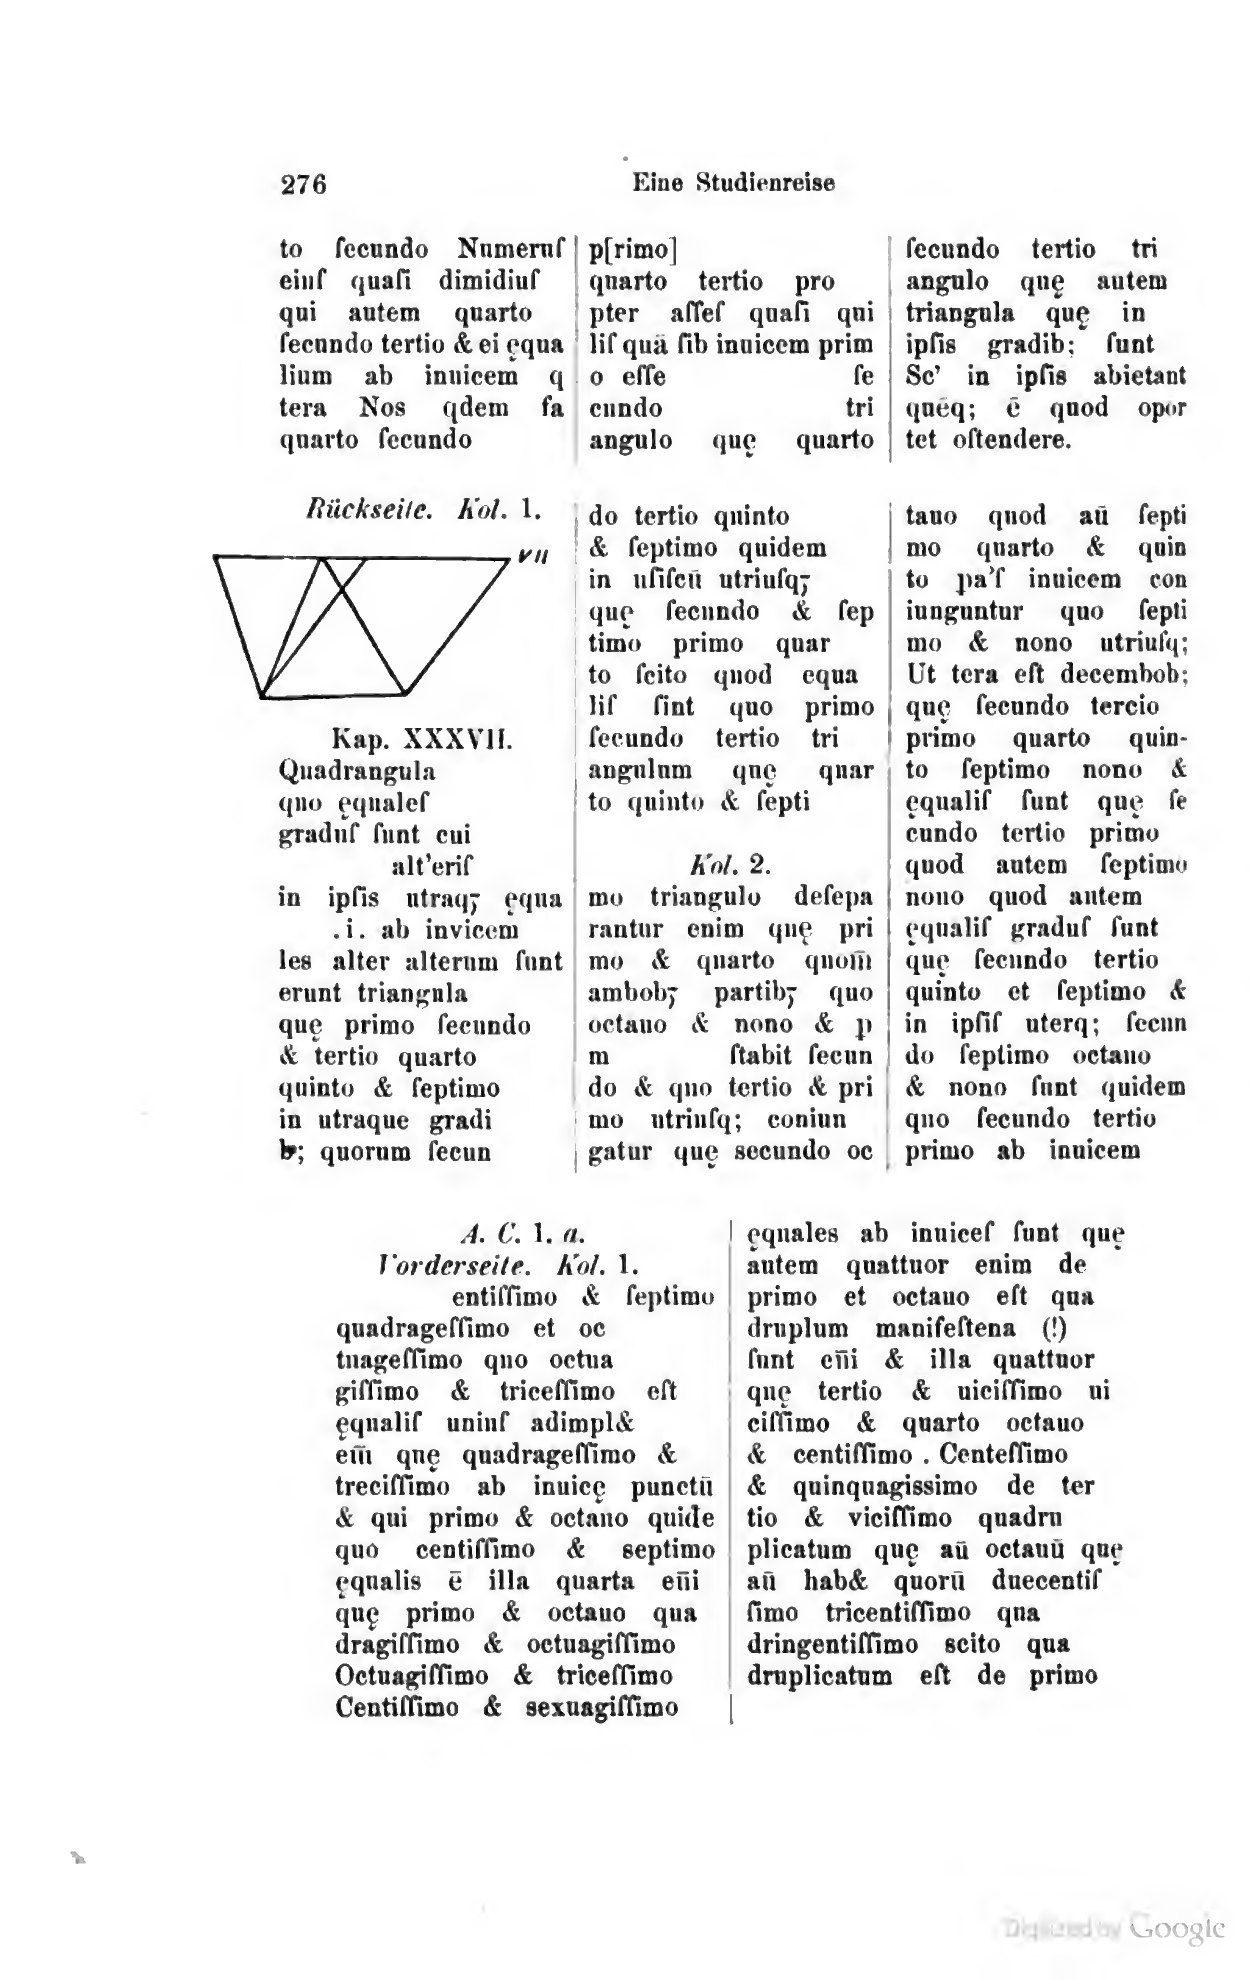 276 Eine Studienreise
to ſecundo Numeruſ
eiuſ quaſi dimidiuſ
qui autem quarto
ſecundo tertio & ei ęqua
lium ab inuicem q
tera Nos qdem fa
quarto ſecundo
p[rimo]
quarto tertio pro
pter aſſeſ quaſi qui
liſ quā ſib inuicem prim
o eſſe ſe
cundo tri
angulo quę quarto
ſecundo tertio tri
angulo quę autem
triangula quę in
ipſis gradib; ſunt
Sc’ in ipſis abietant
quēq; ē quod opor
tet oſtendere.
Rückseite. Kol. 1.
VII
Kap. XXXVII.
Quadrangula
quo ęqualeſ
graduſ ſunt cui
alt’eriſ
in ipſis utraqꝫ ęqua
.i. ab invicem
les alter alterum ſunt
erunt triangula
quę primo ſecundo
& tertio quarto
quinto & ſeptimo
in utraque gradi
b; quorum ſecun
do tertio quinto
& ſeptimo quidem
in uſiſcū utriuſqꝫ
quę ſecundo & ſep
timo primo quar
to ſcito quod equa
liſ ſint quo primo
ſecundo tertio tri
angulum quę quar
to quinto & ſepti
Kol. 2.
mo triangulo deſepa
rantur enim quę pri
mo & quarto quom̄
ambobꝫ partibꝫ quo
octauo & nono & p
m ſtabit ſecun
do & quo tertio & pri
mo utriuſq; coniun
gatur quę secundo oc
tauo quod aū ſepti
mo quarto & quin
to pa’ſ inuicem con
iunguntur quo ſepti
mo & nono utriuſq;
Ut tera eſt decembob;
quę ſecundo tercio
primo quarto quin-
to ſeptimo nono &
ęqualiſ ſunt quę ſe
cundo tertio primo
quod autem ſeptimo
nono quod autem
ęqualiſ graduſ ſunt
quę ſecundo tertio
quinto et ſeptimo &
in ipſiſ uterq; ſecun
do ſeptimo octauo
& nono ſunt quidem
quo ſecundo tertio
primo ab inuicem
A. C. 1. a.
Vorderseite. Kol. 1.
entiſſimo & ſeptimo
quadrageſſimo et oc
tuageſſimo quo octua
giſſimo & triceſſimo eſt
ęqualiſ uniuſ adimpl&
em̄ quę quadrageſſimo &
treciſſimo ab inuicę punctū
& qui primo & octauo quide
quo centiſſimo & septimo
ęqualis ē illa quarta en̄i
quę primo & octauo qua
dragiſſimo & octuagiſſimo
Octuagiſſimo & triceſſimo
Centiſſimo & sexuagiſſimo
ęquales ab inuiceſ ſunt quę
autem quattuor enim de
primo et octauo eſt qua
druplum manifeſtena (!)
ſunt en̄i & illa quattuor
quę tertio & uiciſſimo ui
ciſſimo & quarto octauo
& centiſſimo . Centeſſimo
& quinquagissimo de ter
tio & viciſſimo quadru
plicatum quę aū octauū quę
aū hab& quorū duecentiſ
ſimo tricentiſſimo qua
dringentiſſimo scito qua
druplicatum eſt de primo
Digitized by Google